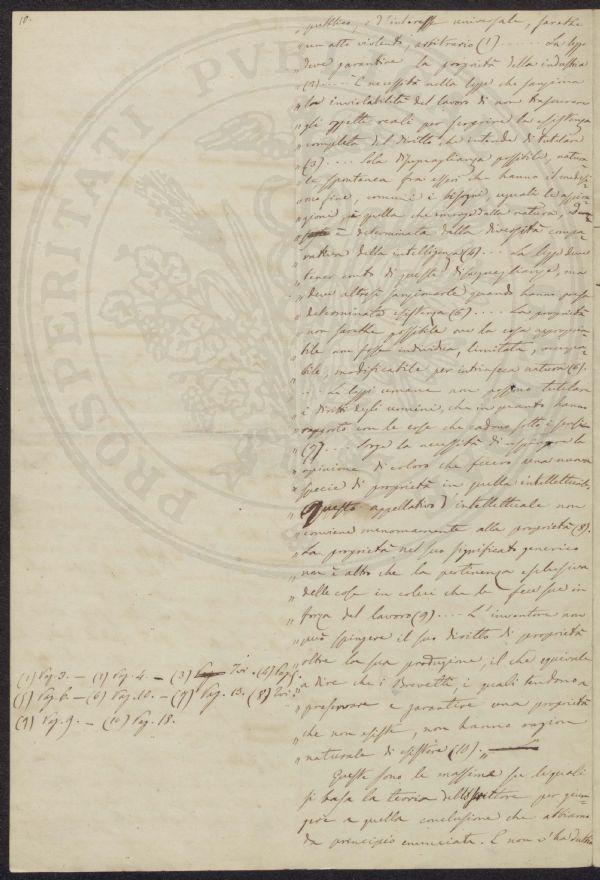 10.
" pubblico, e d'interesse universale, sarebbe
" un atto violento, arbitrario (1) ....... La legge
" deve garantire la proprietà della industria
" (2) .... È necessità nella legge che sanziona
" la inviolabilità del lavoro di non trascurare
" gli oggetti reali per scoprire la esistenza
" completa del diritto che intende di tutelare
" (3) .... Sola disuguaglianza possibile, natura-
" le spontanea fra esseri che hanno il medesi-
" mo fine, comuni i bisogni, eguale la
" è quella che emerge dalla natura,
" è determinata dalla diversità compa-
" rativa della intelligenza (4) ... La legge deve
" tener conto di queste disuguaglianze, ma
" deve altresì sanzionarle quando hanno preso
" determinata esistenza (5) ..... La proprietà
" non sarebbe possibile ove la cosa appropria-
" bile non fosse individua, limitata,
" bile, modificabile per intrinseca natura (6).
" .. Le leggi umane non possono tutelare
" i diritti degli uomini, che in quanto hanno
" rapporto con le cose che cadono sotto i sensi
" (7) .... Sorge la necessità di respingere la
" opinione di coloro che fecero una nuova
" specie di proprietà in quella intellettuale.
" Questo appellativo d'intellettuale non
" conviene menomamente alla proprietà (8).
" La proprietà nel suo significato generico
" non è altro che la pertinenza esclusiva
" delle cose in coloro che le fece sue in
" forza del lavoro (9) .... L'inventore non
" può spingere il suo diritto di proprietà
" oltre la sua produzione, il che equivale
" a dire che i Brevetti, i quali tendono a
" preservare e garantire una proprietà
" che non esiste, non hanno ragione
" naturale di esistere (10). — "
Queste sono le massime su le quali
si basa la teoria dello scrittore per giun-
gere a quella conclusione che abbiamo
da principio enunciata. E non v'ha dubbio
(1) Pag. 3. — (2) Pag. 4. — (3) Ivi. (4) Pag. 5.
(5) Pag. 6 — (6) Pag. 10. — (7) Pag. 13. (8) Ivi.
(9) Pag. 9. — (10) Pag. 18.
PROSPERITATI PVBL